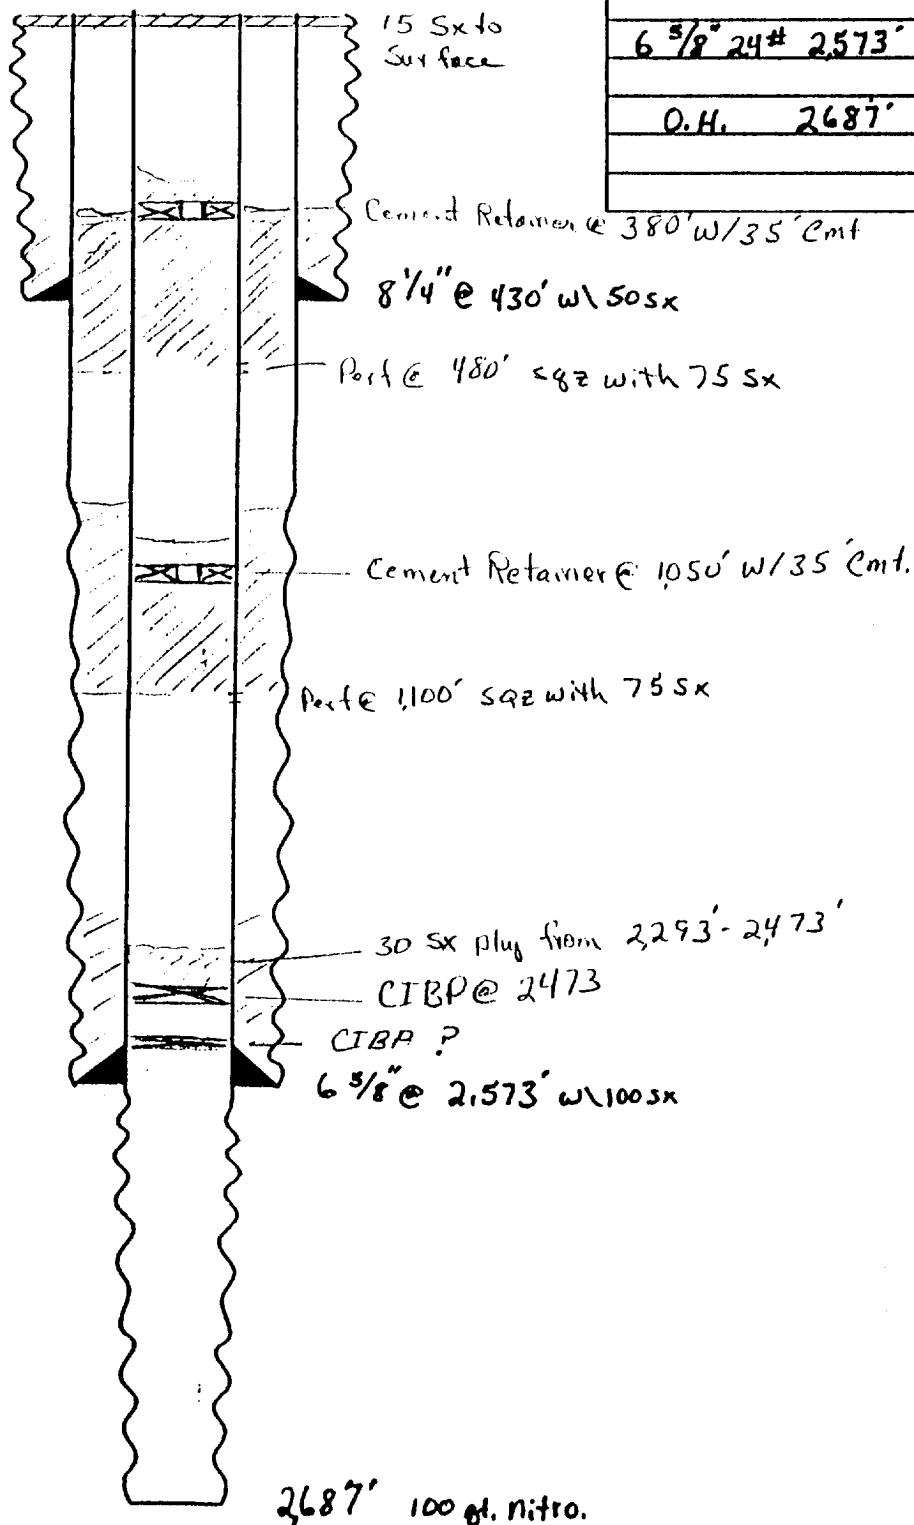 15 Sx to
Surface
6 5/8" 24# 2,573'
O.H. 2687'
Cement Retainer @ 380' W/35' Cmt
8 1/4" @ 430' w\ 50 sx
Perf @ 480' sqz with 75 Sx
Cement Retainer @ 1,050' W/35' Cmt.
Perf @ 1,100' sqz with 75 Sx
30 Sx plug from 2,293' - 2,473'
CIBP @ 2473
CIBP ?
6 5/8" @ 2,573' w\ 100 sx
2,687' 100 qt. nitro.